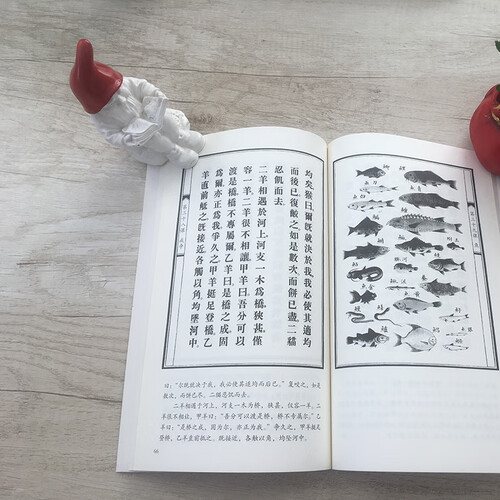 均矣。猴曰。爾既就決於我。我必使其適均
而後已。復齩之。如是數次。而餅已盡。二貓
忍飢而去。
二羊相遇於河上。河支一木爲橋。狹甚。僅
容一羊。二羊很不相讓。甲羊曰。吾分可以
渡是橋。橋不專屬爾。乙羊曰。是橋之成。固
爲爾。亦正爲我。爭久之。甲羊挺足登橋。乙
羊直前觝之。既接近。各觸以角。均墜河中。
曰：“尔既就决于我，我必使其适均而后已。”复咬之，如是
数次，而饼已尽。二猫忍饥而去。
二羊相遇于河上，河支一木为桥，狭甚，仅容一羊。二羊
很不相让，甲羊曰：“吾分可以渡是桥，桥不专属尔。”乙
羊曰：“是桥之成，固为尔，亦正为我。”争久之，甲羊挺足
登桥，乙羊直前抵之。既接近，各触以角，均坠河中。
66
鯉